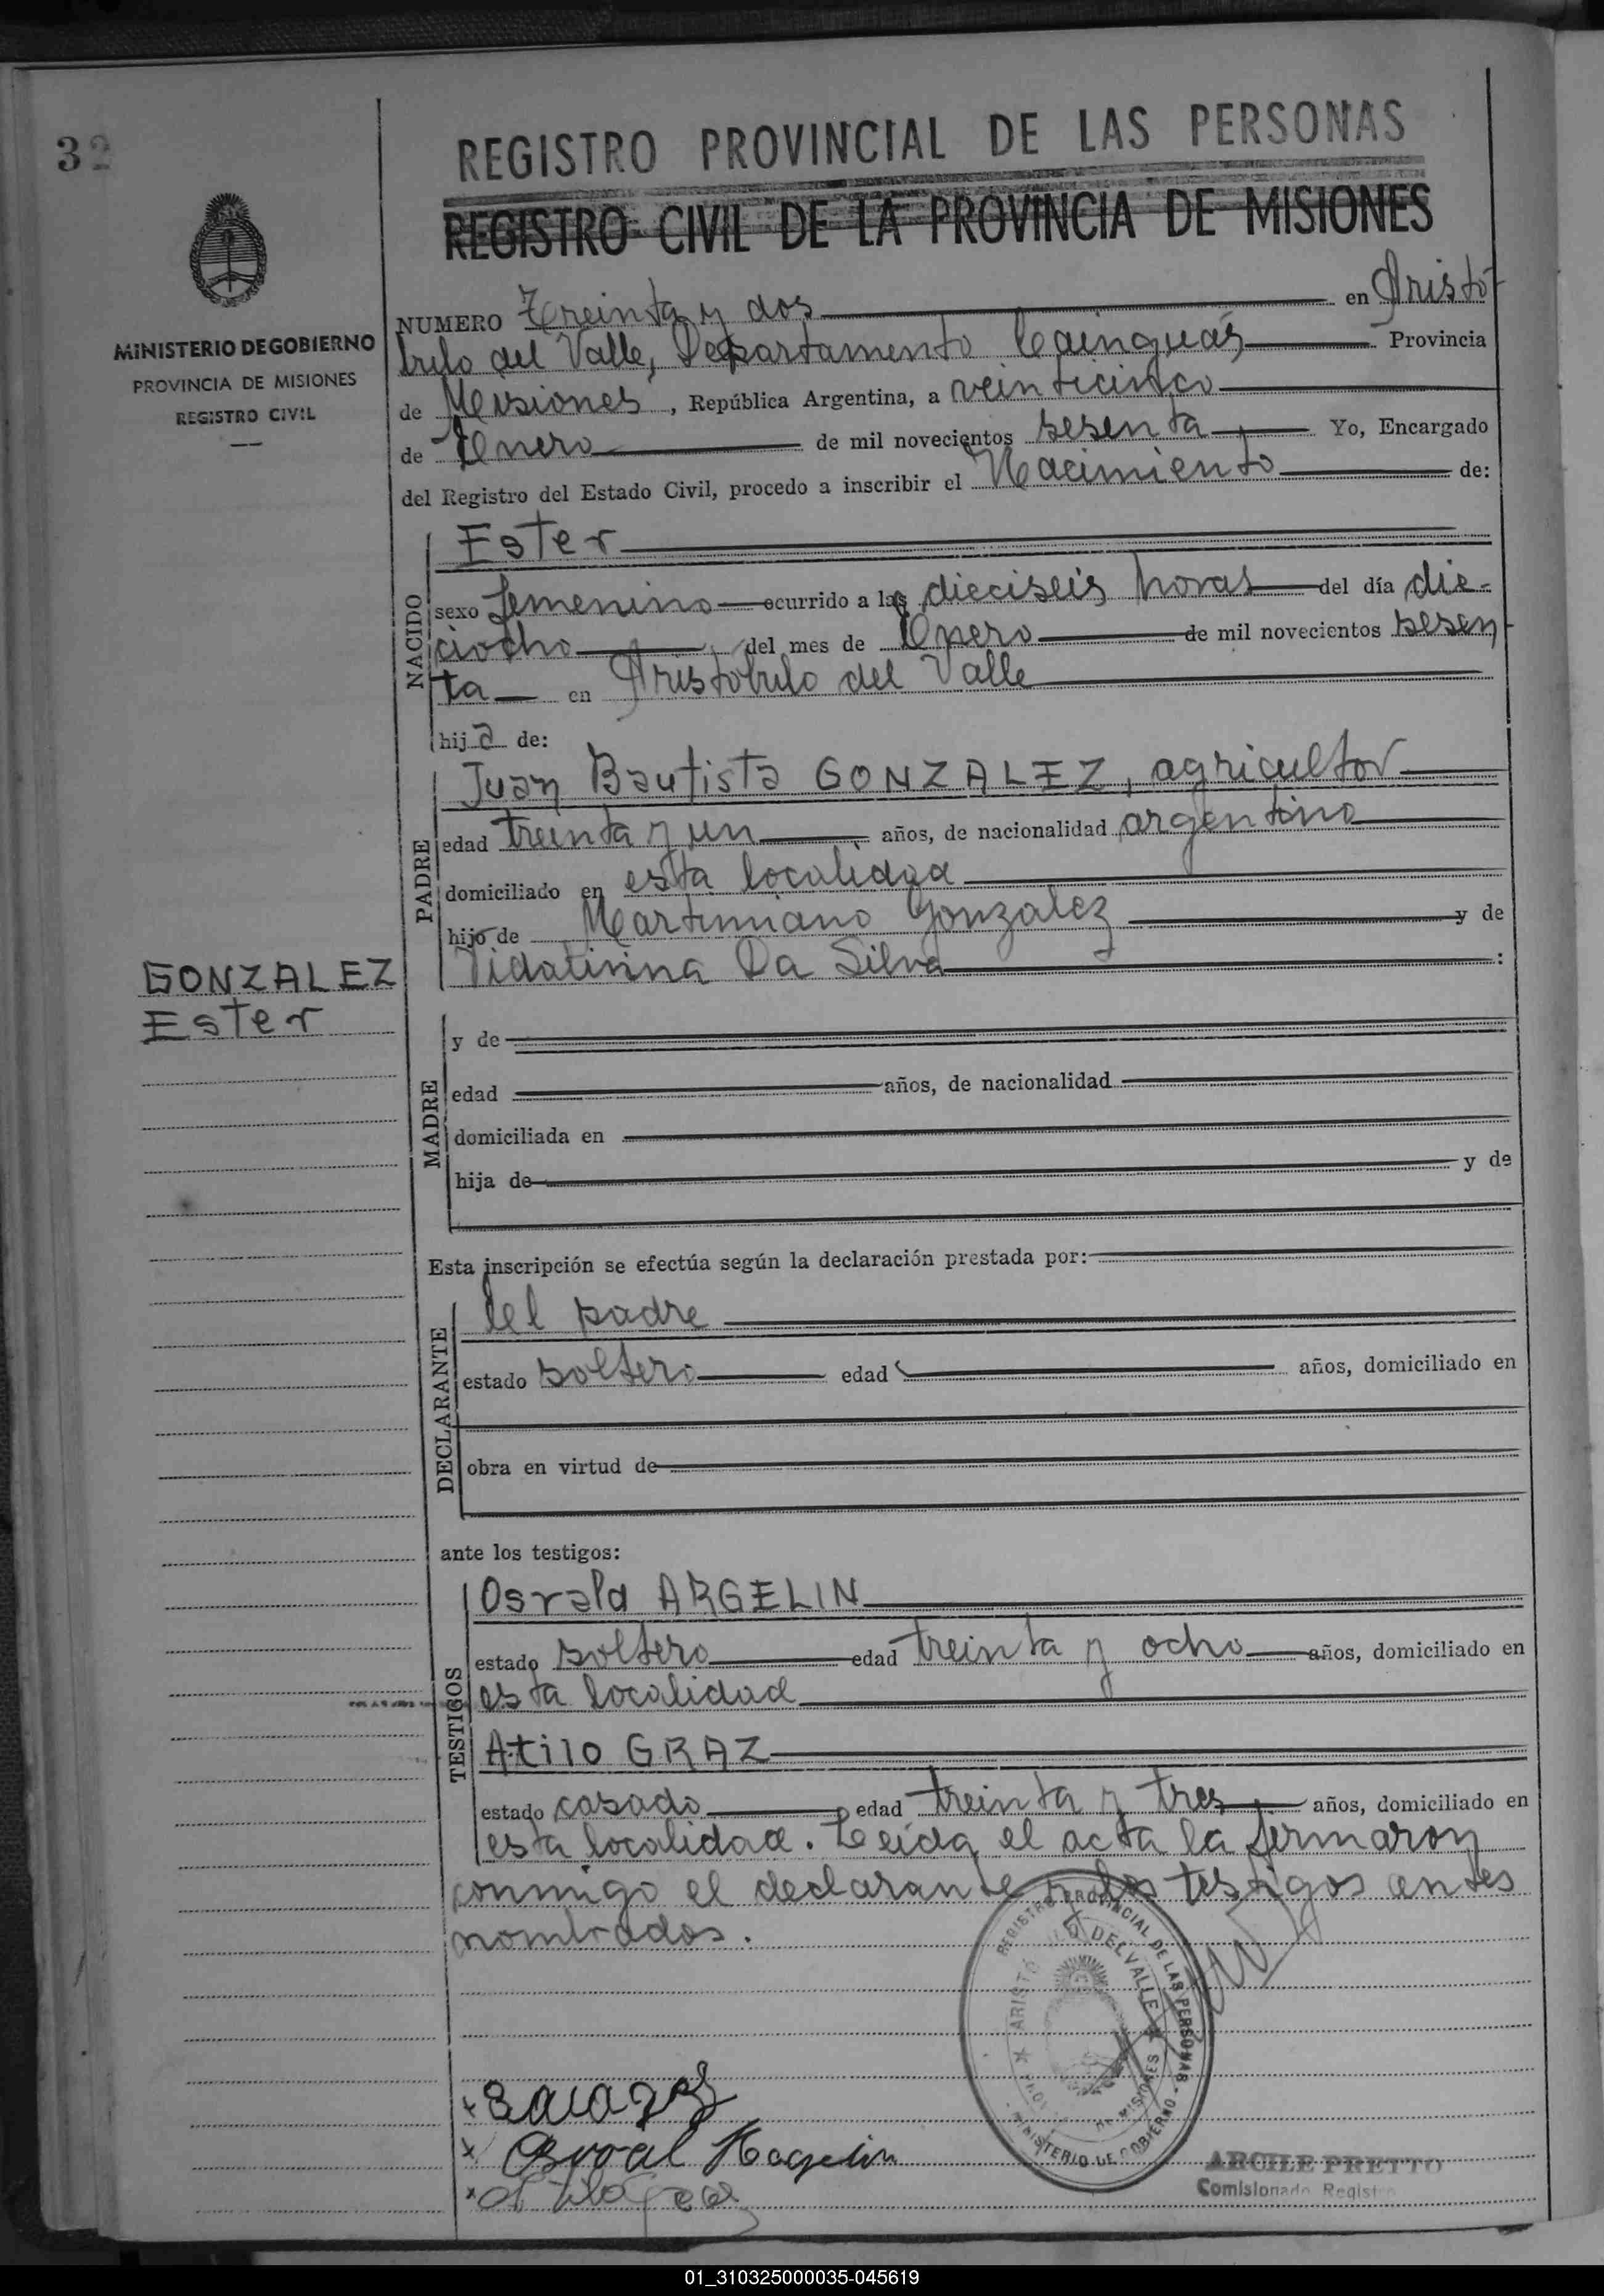 32
REGISTRO PROVINCIAL DE LAS PERSONAS
REGISTRO CIVIL DE LA PROVINCIA DE MISIONES
MINISTERIO DE GOBIERNO
PROVINCIA DE MISIONES
REGISTRO CIVIL
NUMERO Treinta y dos en Aristó
bulo del Valle, Departamento Cainguás Provincia
de Misiones, República Argentina, a veinticinco
de Enero de mil novecientos sesenta Yo, Encargado
del Registro del Estado Civil, procedo a inscribir el Nacimiento de:
NACIDO
Ester
sexo femenino ocurrido a las dieciseis horas del día die-
ciocho del mes de Enero de mil novecientos sesen
ta en Aristóbulo del Valle
hija de:
PADRE
Juan Bautista GONZALEZ, agricultor
edad treinta y un años, de nacionalidad argentino
domiciliado en esta localidad
hijo de Martiniano Gonzalez y de
Da Silva :
GONZALEZ
Ester
MADRE
y de
edad años, de nacionalidad
domiciliada en
hija de y de
Esta inscripción se efectúa según la declaración prestada por:
DECLARANTE
del padre
estado soltero edad años, domiciliado en
obra en virtud de
ante los testigos:
TESTIGOS
Osvald ARGELIN
estado soltero edad treinta y ocho años, domiciliado en
esta localidad
Atilo GRAZ
estado casado edad treinta y tres años, domiciliado en
esta localidad. Leida el acta la firmaron
conmigo el declarante y los testigos antes
nombrados.
REGISTRO PROVINCIAL DE LAS PERSONAS
DEL VALLE
MISIONES
MINISTERIO DE GOBIERNO
ARCILE PRETTO
Comisionado Registro
01_310325000035-045619